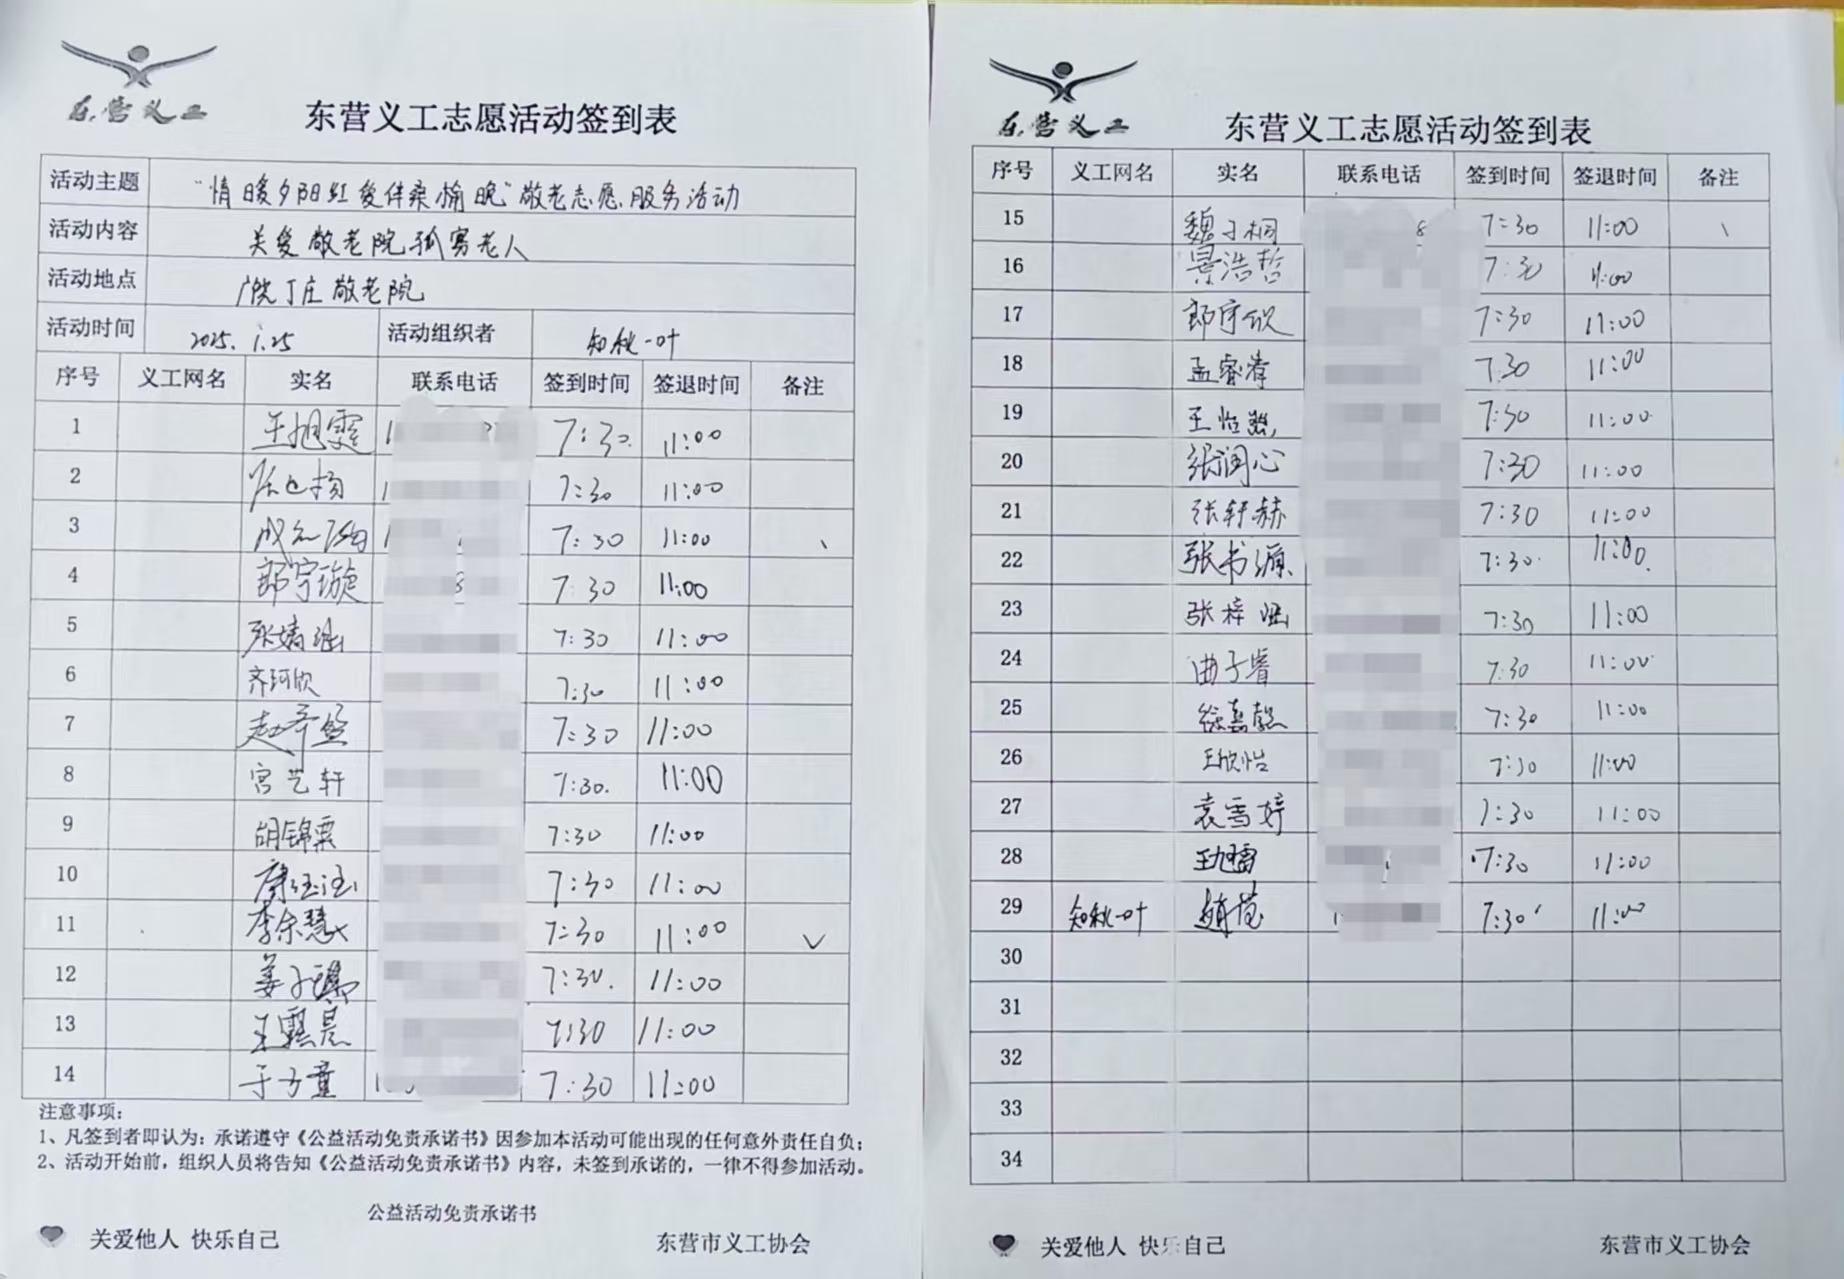 东营义工
东营义工志愿活动签到表
活动主题 “情暖夕阳红 爱伴桑榆晚”敬老志愿服务活动
活动内容 关爱敬老院孤寡老人
活动地点 丁庄敬老院
活动时间 2025.1.25 活动组织者 知秋一叶
序号 义工网名 实名 联系电话 签到时间 签退时间 备注
1 王旭霏 7:30 11:00
2 7:30 11:00
3 7:30 11:00
4 郎宁璇 7:30 11:00
5 张婧涵 7:30 11:00
6 齐珂欣 7:30 11:00
7 7:30 11:00
8 宫艺轩 7:30 11:00
9 胡锦霖 7:30 11:00
10 7:30 11:00
11 李余慧 7:30 11:00 ✓
12 姜子 7:30 11:00
13 王 7:30 11:00
14 于子童 7:30 11:00
注意事项:
1、凡签到者即认为:承诺遵守《公益活动免责承诺书》因参加本活动可能出现的任何意外责任自负;
2、活动开始前,组织人员将告知《公益活动免责承诺书》内容,未签到承诺的,一律不得参加活动。
公益活动免责承诺书
关爱他人 快乐自己 东营市义工协会
东营义工
东营义工志愿活动签到表
序号 义工网名 实名 联系电话 签到时间 签退时间 备注
15 魏子桐 8 7:30 11:00
16 景浩哲 7:30 11:00
17 郎宇欣 7:30 11:00
18 孟睿涛 7:30 11:00
19 王怡 7:30 11:00
20 张润心 7:30 11:00
21 张轩赫 7:30 11:00
22 张书源 7:30 11:00
23 张梓 7:30 11:00
24 曲子睿 7:30 11:00
25 徐嘉懿 7:30 11:00
26 王欣怡 7:30 11:00
27 袁雪婷 7:30 11:00
28 7:30 11:00
29 知秋一叶 7:30 11:00
30
31
32
33
34
关爱他人 快乐自己 东营市义工协会